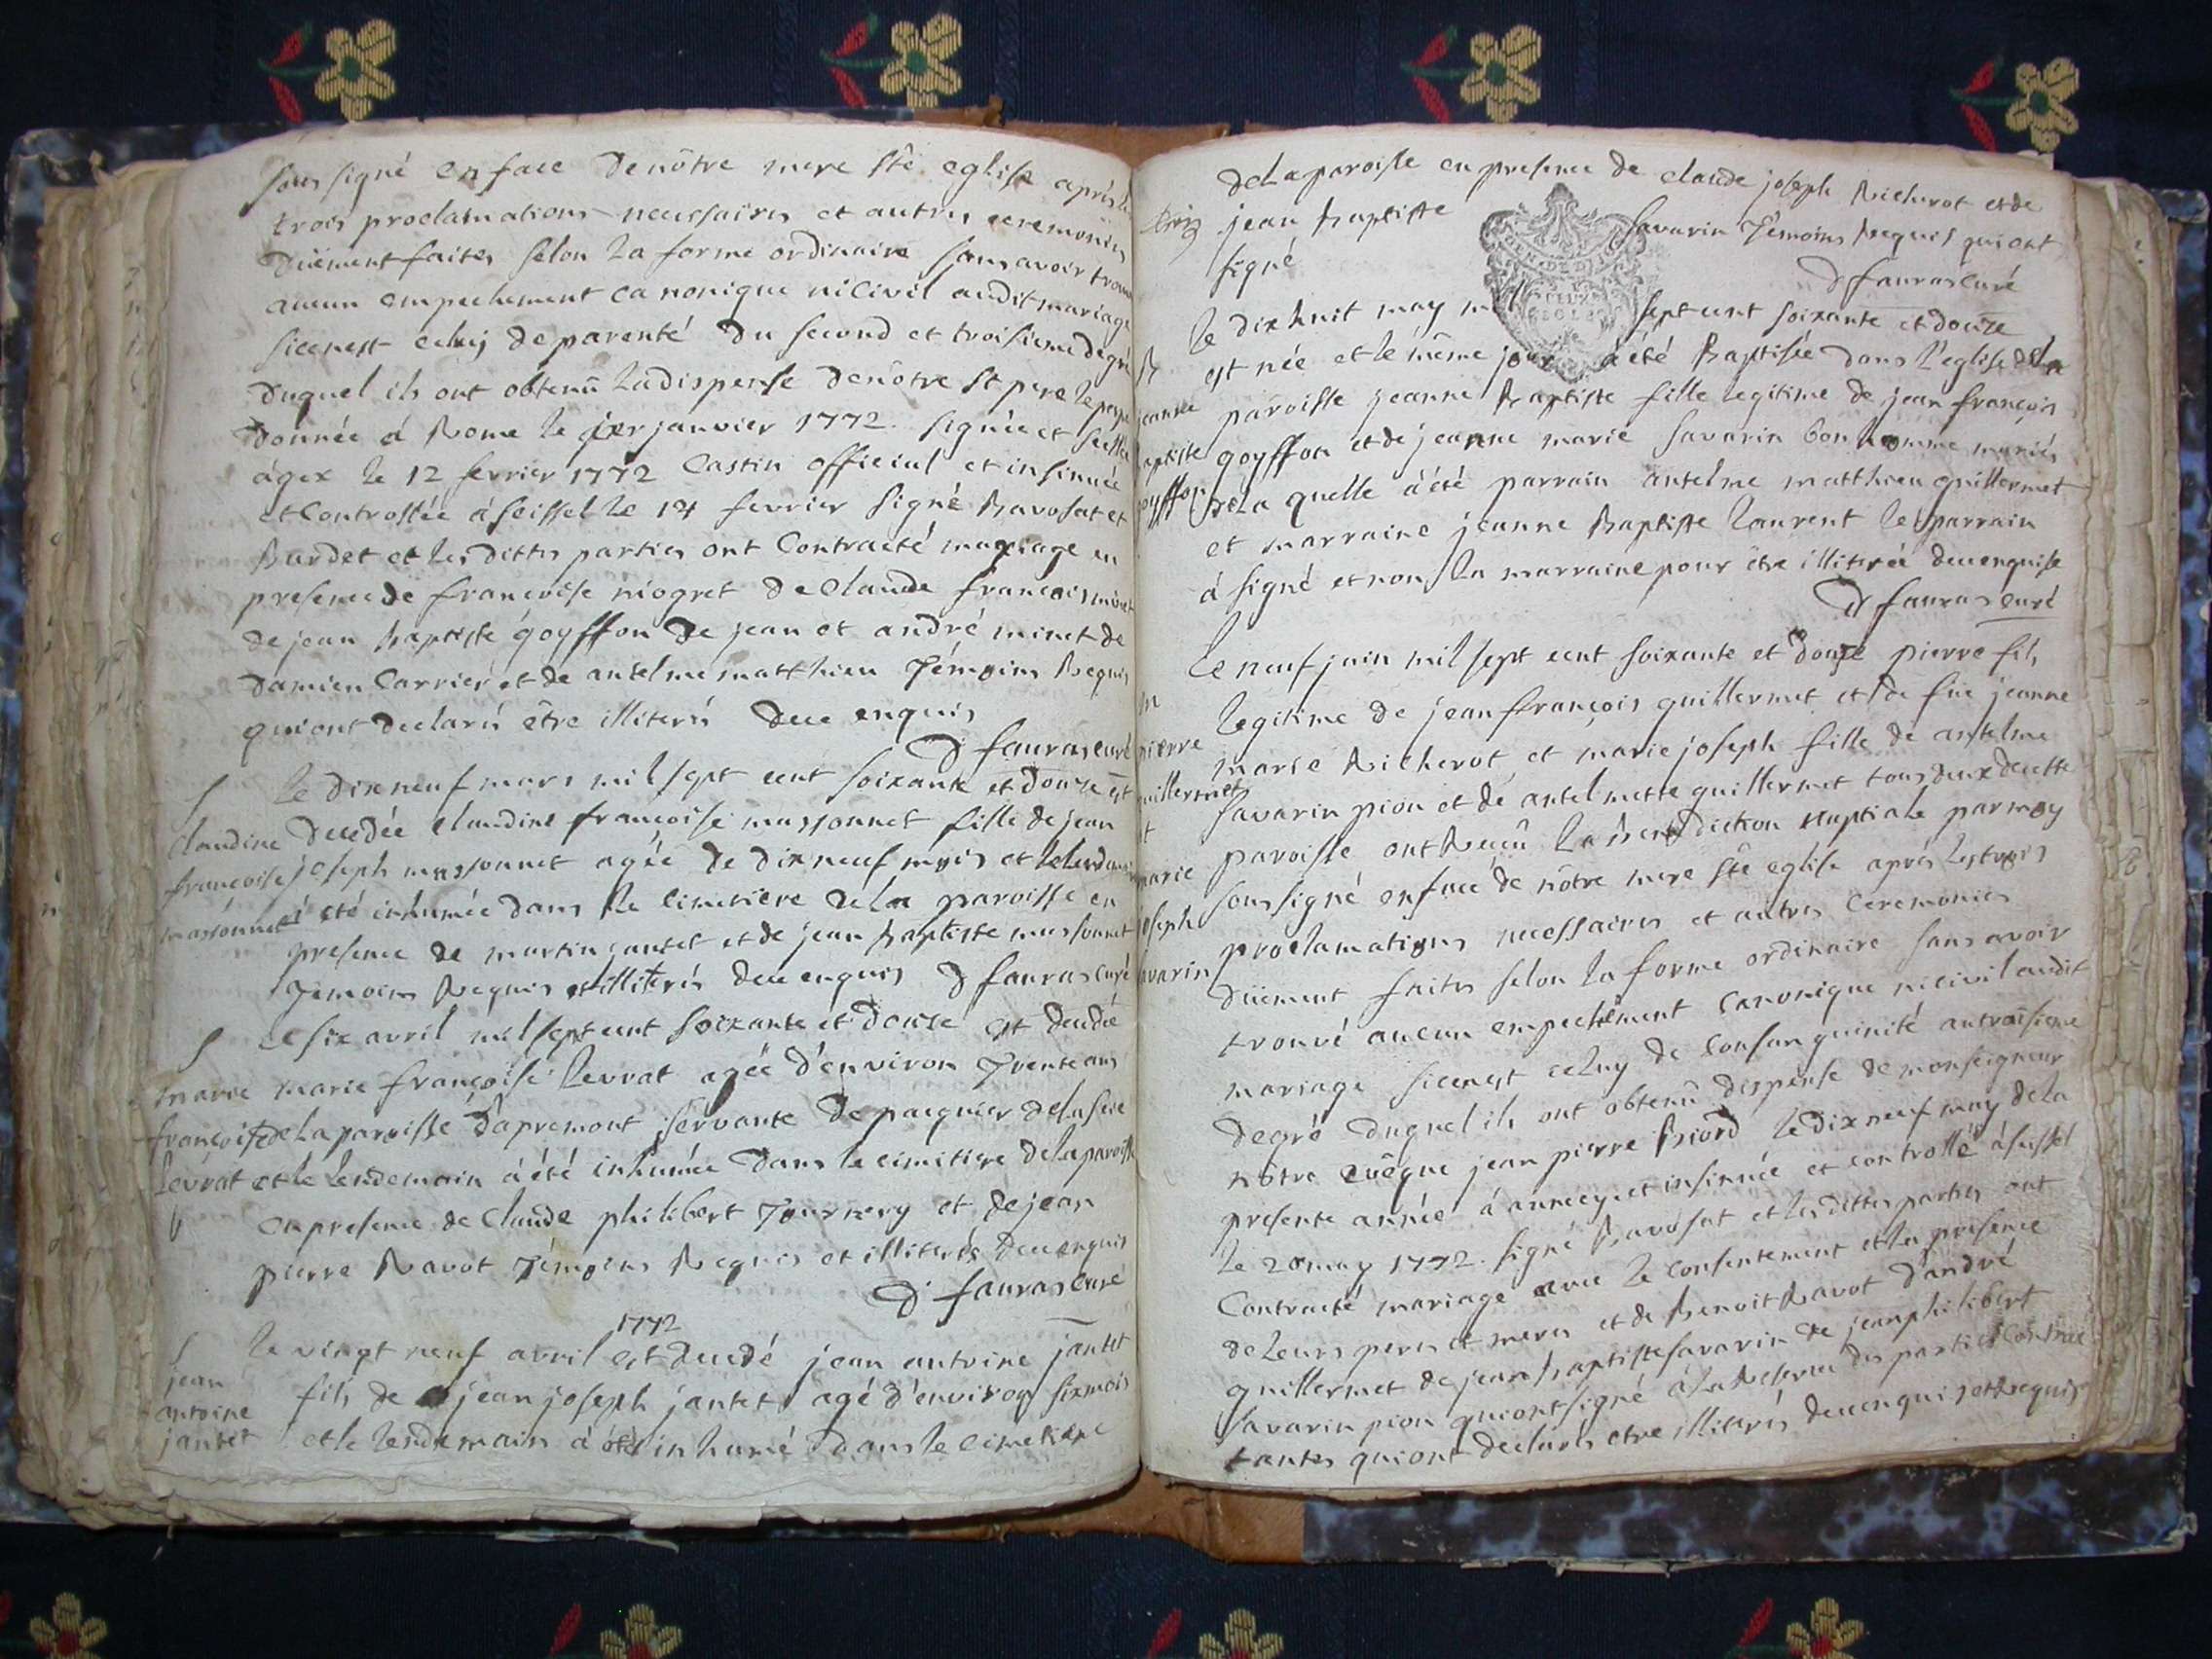 sous signé en face de nôtre mere ste eglise aprés les
trois proclamations necessaires et autres ceremonies
düement faites selon la forme ordinaire sans avoir trouvé
aucun empechement canonique ni civil audit mariage
si ce nest celuy de parenté du second et troisieme degré
duquel ils ont obtenu la dispense de nôtre st pere le pape
donnée á Rome le janvier 1772. signée et scellée
á gex le 12 fevrier 1772 Castin official et insinuée
et Controllée á seissel le 14 fevrier signé Ravosat et
Burdet et les dittes parties ont Contracté mariage en
presence de françoise niogret de Claude françois minet
de jean Baptiste goyffon de jean et andré minet de
damien Carrier et de antelme matthieu témoins Requis
qui ont declarés être illiterés de ce enquis
D fauras curé
S
le dix neuf mars mil sept cent soixante et douze est
Claudine decedée claudine françoise massonnet fille de jean
françoise joseph massonnet agée de dix neuf mois et le lendemain
massonnet á été inhumée dans le cimetiere de la paroisse en
presence de martin jantet et de jean Baptiste massonnet
témoins Requis et illiterés de ce enquis D fauras curé
S le six avril mil sept cent soixante et douze est decedée
marie marie françoise levrat agée d'environ trente ans
françoise de la paroisse d'apremont servante de pacquier
levrat et le lendemain á été inhumée dans le cimitiere de la paroisse
en presence de Claude philibert tournery et de jean
pierre Ravot témoins Requis et illiterés de ce enquis
D fauras Curé
1772
S le vingt neuf avril est decedé jean antoine jantet
jean
fils de jean joseph jantet agé d'environ six mois
antoine
jantet et le lendemain á été inhumé dans le cimetiere
de la paroisse en presence de claude joseph Richerot et de
jean Baptiste savarin témoins Requis qui ont
signé
D fauras curé
le dix huit may mil sept cent soixante et douze
B est née et le même jour á été Baptisée dans l'eglise de la
jeanne paroisse jeanne Baptiste fille legitime de jean françois
Baptiste goyffon et de jeanne marie savarin bon homme mariés
goyffon de la quelle á été parrain antelme matthieu guillermet
et marraine jeanne Baptiste laurent le parrain
á signé et non la marraine pour être illiterée de ce enquise
D fauras curé
le neuf juin mil sept cent soixante et douze pierre fils
m legitime de jean françois guillermet et de füe jeanne
pierre marie Richerot et marie joseph fille de antelme
guillermet savarin pion et de antelmette guillermet tous deux de cette
et paroisse ont Reçu la benediction nuptiale par moy
marie sous signé en face de nôtre mere ste eglise aprés les trois
joseph proclamations necessaires et autres ceremonies
savarin düement faites selon la forme ordinaire sans avoir
trouvé aucun empechement canonique ni civil audit
mariage si ce nest celuy de consanguinité au troisieme
degré duquel ils ont obtenu dispense de monseigneur
nôtre evêque jean pierre Biord le dix neuf may de la
presente année á annecy et insinuée et controllé á seissel
le 20 may 1772. signé Ravosat et les dittes parties ont
Contracté mariage avec le consentement et la presence
de leurs peres et meres et de Benoit Ravot d'andré
guillermet de jean Baptiste savarin de jean philibert
savarin pion qui ont signé á la Reserve des parties contrac
tantes qui ont declarés etre illiterés de ce enquis et Requis